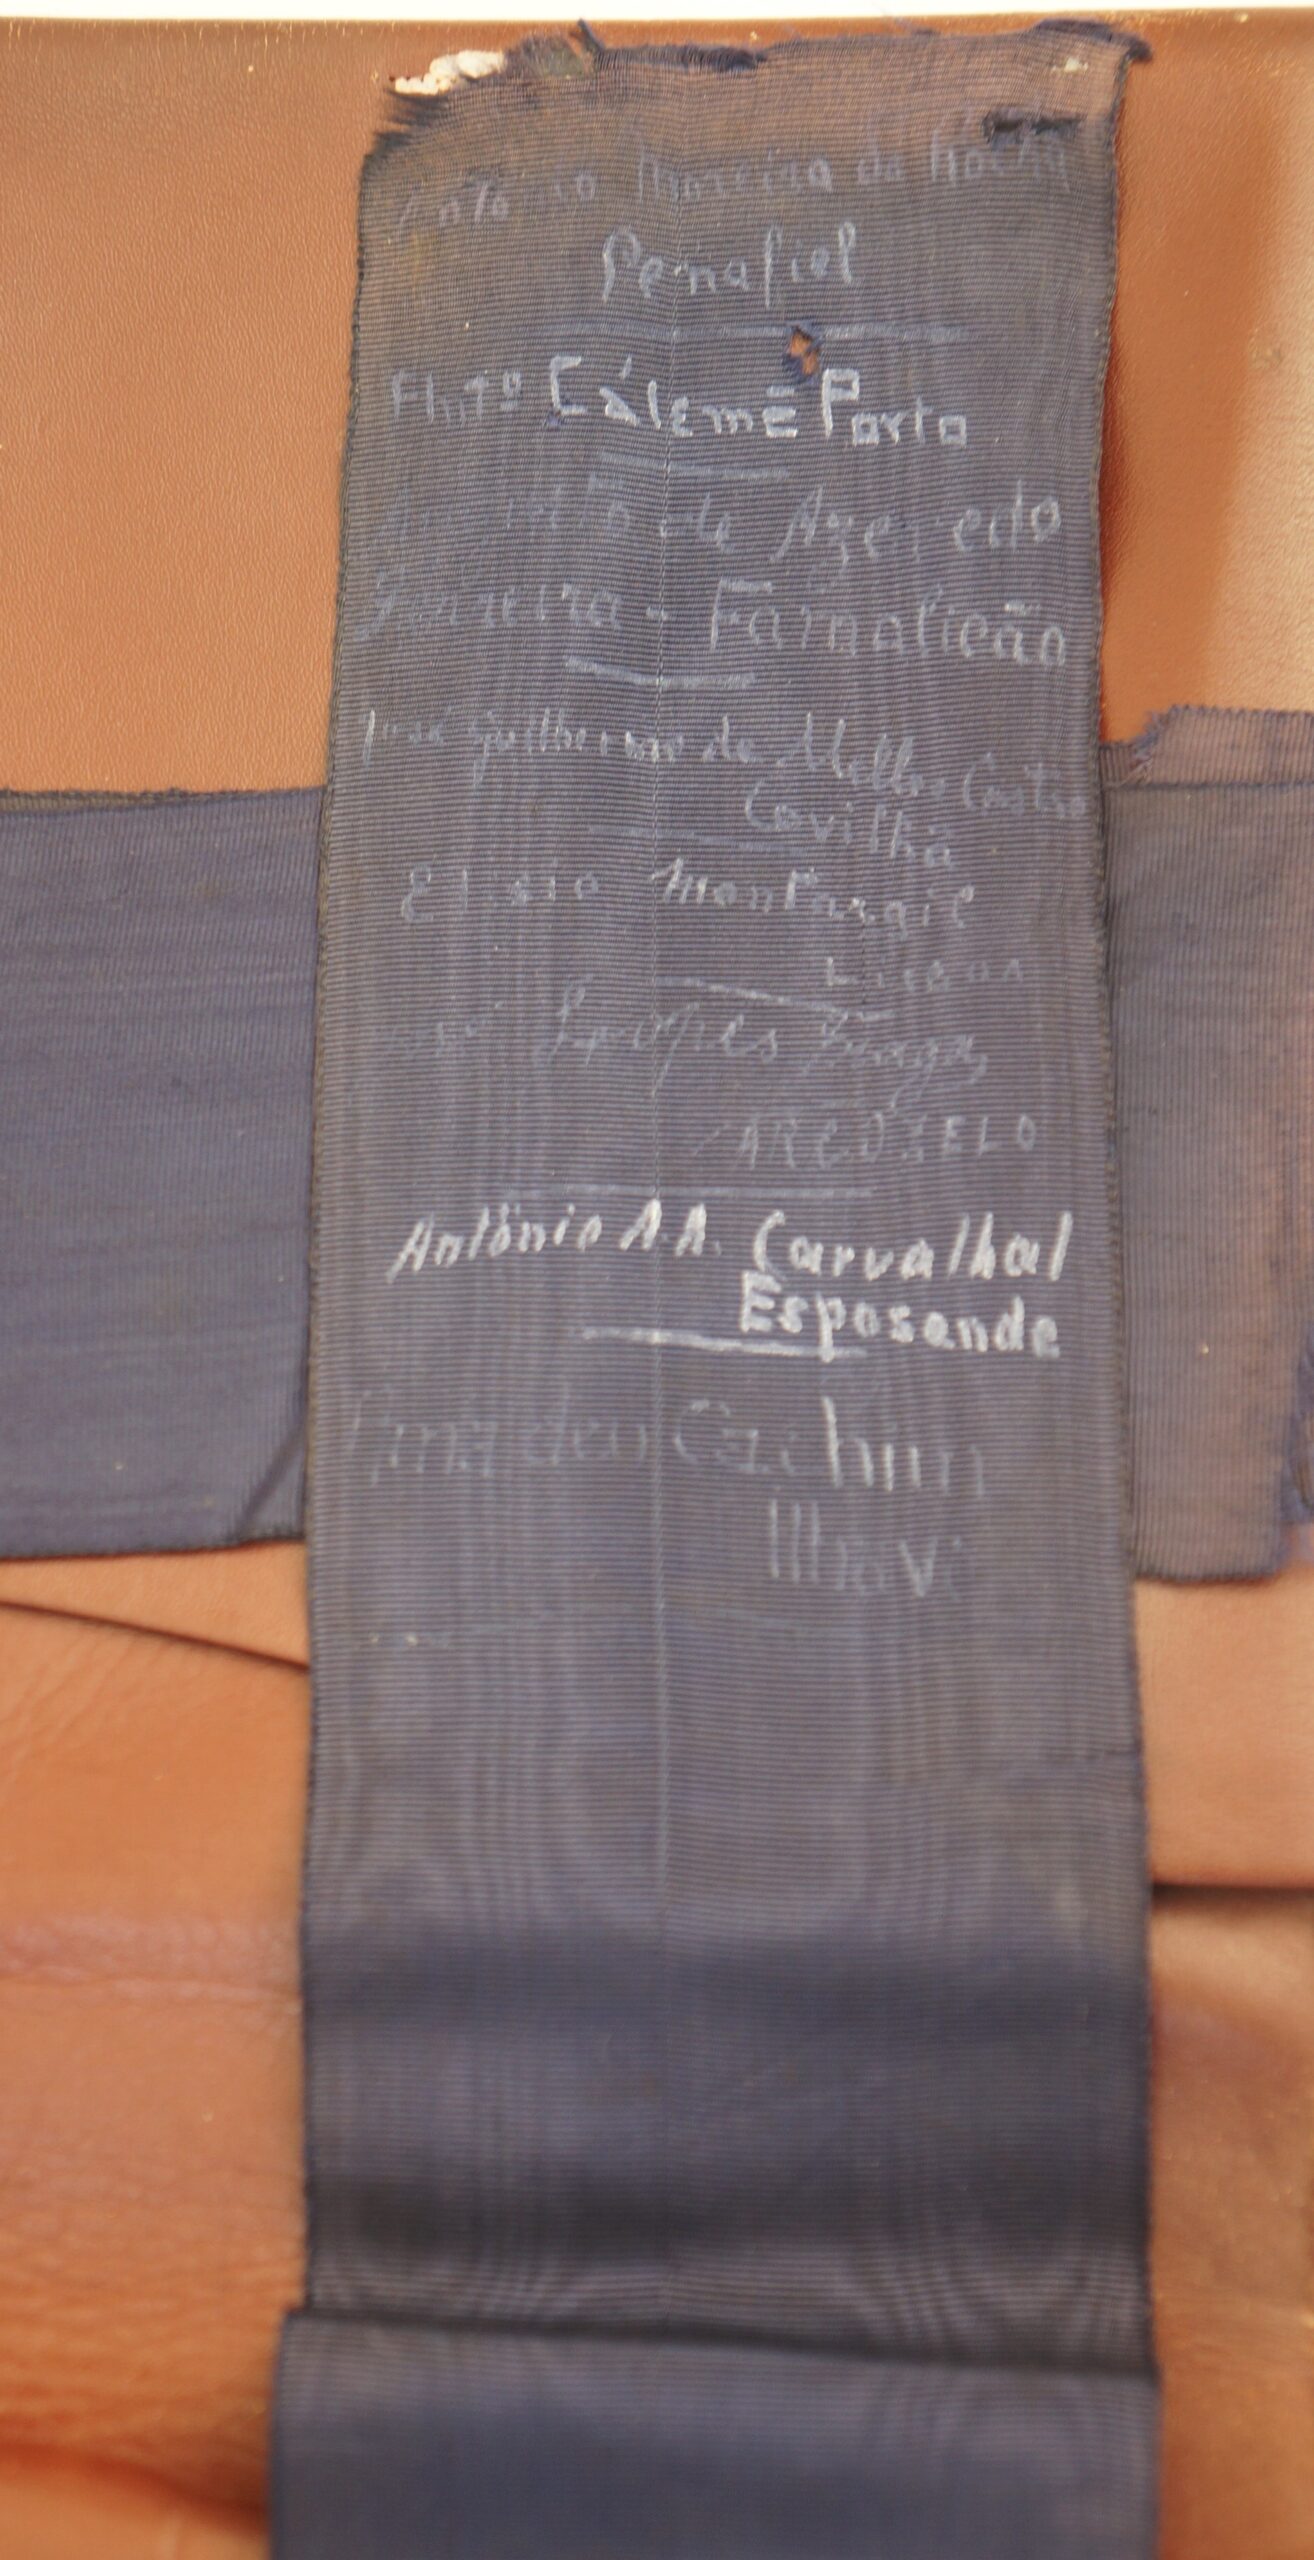 Antonio Moreira da Rocha
Penafiel
Antº Cálem Porto
de Azevedo
Ferreira - Famalicão
José Guilherme de Mello e Castro
Covilhã
Elisio Montargil
Lisboa
José Lopes Braga
ARCOZELO
António A.A. Carvalhal
Esposende
Amadeu